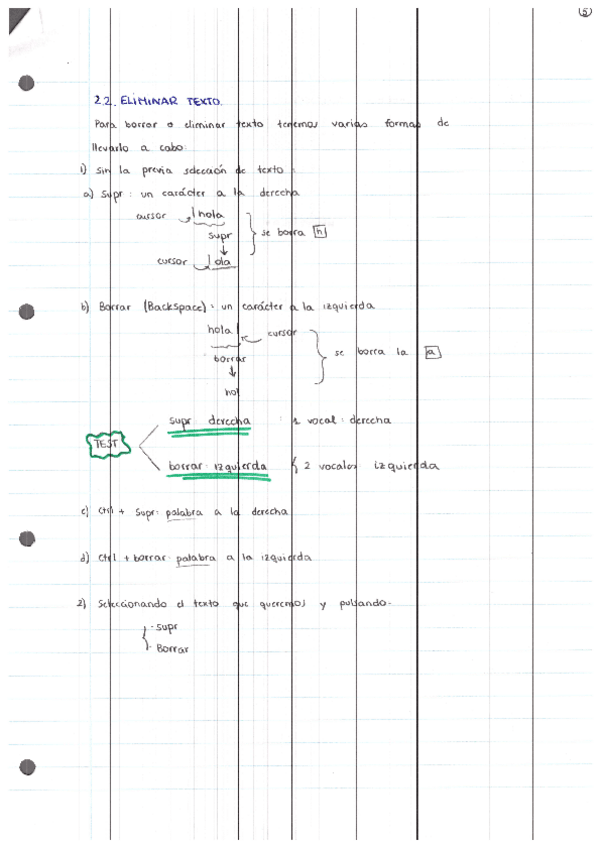 5
2.2. ELIMINAR TEXTO.
Para borrar o eliminar texto tenemos varias formas de
llevarlo a cabo:
1) Sin la previa selección de texto:
a) Supr: un carácter a la derecha
cursor |hola
supr
se borra h
cursor |ola
b) Borrar (BackSpace): un carácter a la izquierda
hola| cursor
borrar
se borra la a
hol
TEST
supr derecha : 1 vocal: derecha
borrar izquierda { 2 vocales izquierda
c) Ctrl + Supr: palabra a la derecha
d) Ctrl + borrar: palabra a la izquierda
2) Seleccionando el texto que queremos y pulsando.
· Supr
· Borrar